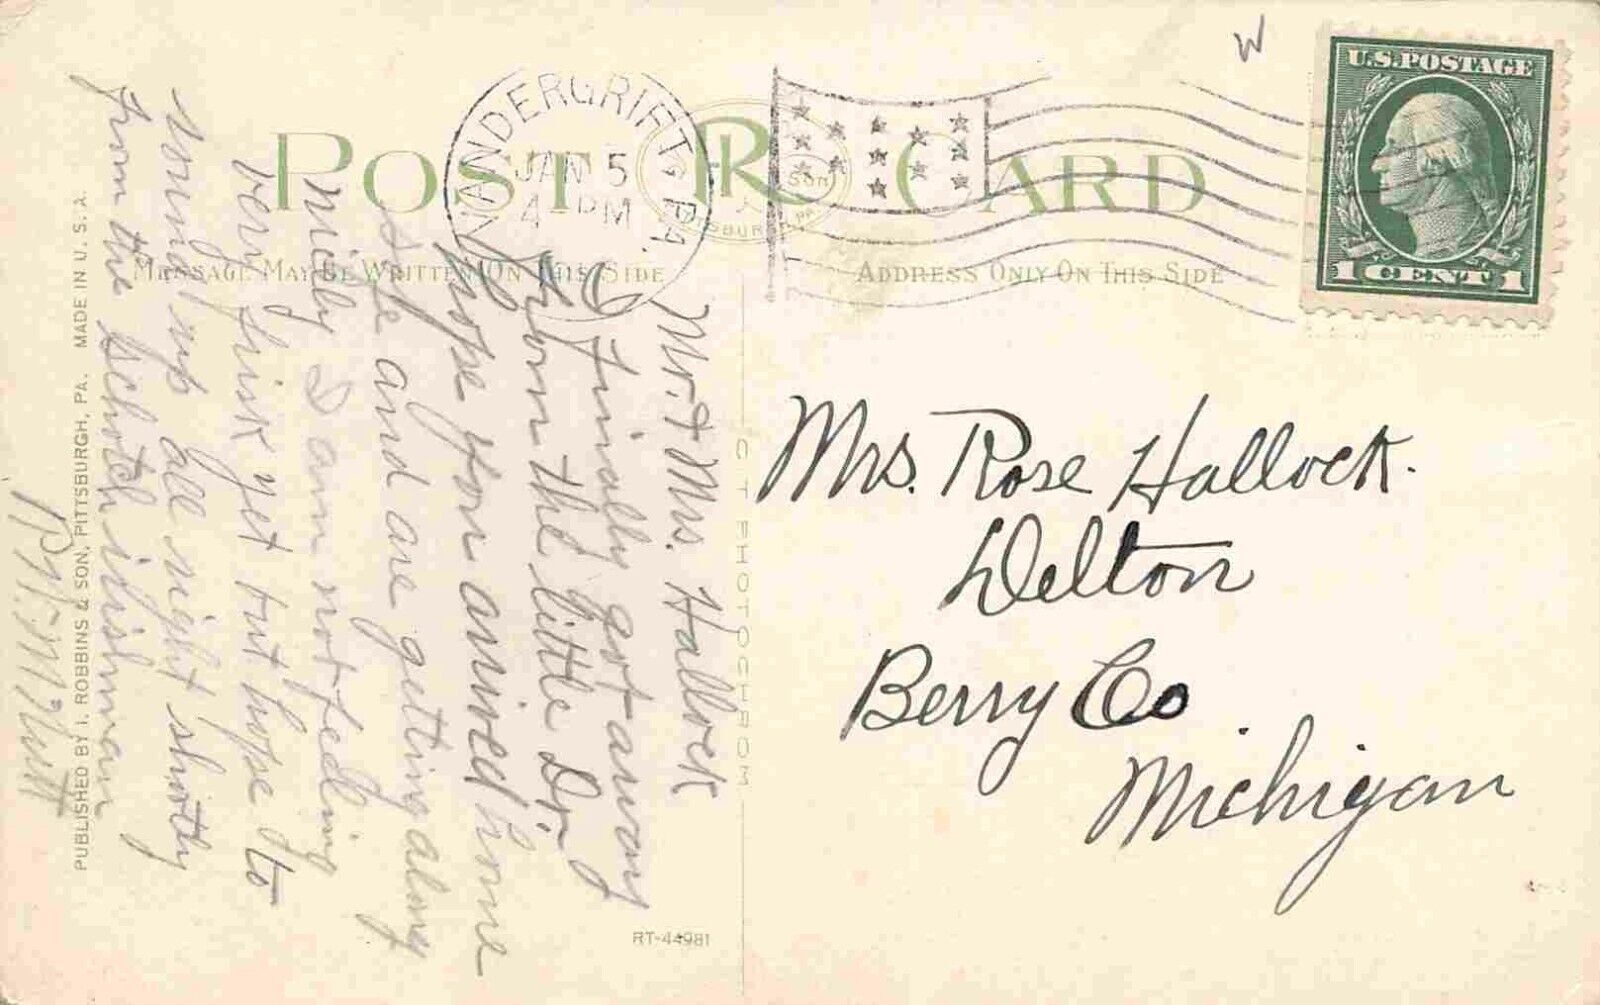 POST CARD
VANDERGRIFT PA.
JAN 5
4-PM
U.S. POSTAGE
1 CENT 1
MESSAGE MAY BE WRITTEN ON THIS SIDE
ADDRESS ONLY ON THIS SIDE
Mr. & Mrs. Hallock
I finally got away
from the little Dr.
hope you arrived home
safe and are getting along
nicely I am not feeling
very frisk yet but hope to
round up all right shortly
from the schotch irishman
Mrs. Rose Hallock.
Delton
Berry Co
Michigan
OCTPHOTOCHROM
PUBLISHED BY I. ROBBINS & SON, PITTSBURGH, PA. MADE IN U.S.A.
RT-44981